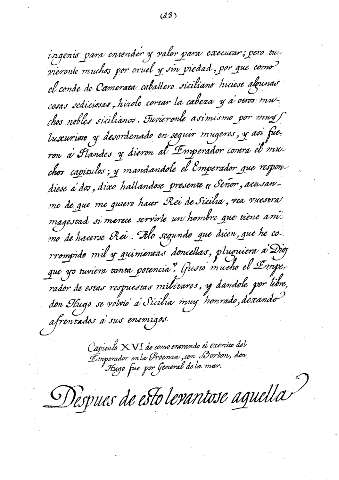 (28)
ingenio para entender y valor para executar; pero tu-
vieronle muchos por cruel y sin piedad, por que como
el conde de Camerata caballero siciliano hiciese algunas
cosas sediciosas, hizole cortar la cabeza y á otros mu-
chos nobles sicilianos. Tuvieronle asimismo por muy
luxurioso y desordenado en seguir mugeres, y asi fue-
ron á Flandes y dieron al Emperador contra él mu-
chos capitulos; y mandandole el Emperador que respon-
diese á dos, dixo hallandose presente "Señor, acusan-
me de que me quiero hacer Rei de Sicilia, vea vuestra
magestad si merece servirle un hombre que tiene ani-
mo de hacerse Rei. Alo segundo que dicen, que he co-
rrompido mil y quinientas doncellas, pluguiera á Dios
que yo tuviera tanta potencia". Gustó mucho el Empe-
rador de estas respuestas militares, y dandole por libre,
don Hugo se volvió á Sicilia muy honrado, dexando
afrontados á sus enemigos.
Capitulo XVI. de como entrando el exercito del
Emperador en la Proenza, con Borbon, don
Hugo fue por General de la mar.
Despues de esto levantose aquella